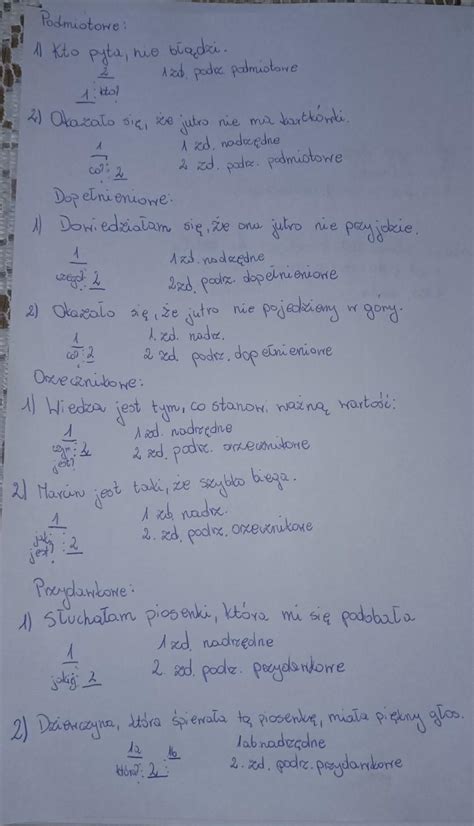 Podmiotowe:
1) Kto pyta, nie błądzi.
2 1 zd. podrz. podmiotowe
1 : kto?
2) Okazało się, że jutro nie ma kartkówki.
1 1 zd. nadrzędne
co? : 2 2 zd. podrz. podmiotowe
Dopełnieniowe:
1) Dowiedziałam się, że ona jutro nie przyjdzie.
1 1 zd. nadrzędne
czego? : 2 2 zd. podrz. dopełnieniowe
2) Okazało się, że jutro nie pojedziemy w góry.
1 1. zd. nadrz.
co? : 2 2 zd. podrz. dopełnieniowe
Orzecznikowe:
1) Wiedza jest tym, co stanowi ważną wartość:
1 1 zd. nadrzędne
czym jest? : 2 2 zd. podrz. orzecznikowe
2) Marcin jest taki, że szybko biega.
1 1 zd. nadrz.
jaki jest? : 2 2. zd. podrz. orzecznikowe
Przydawkowe:
1) Słuchałam piosenki, która mi się podobała
1 1 zd. nadrzędne
jakiej : 2 2 zd. podrz. przydawkowe
2) Dziewczyna, która śpiewała tą piosenkę, miała piękny głos.
1a 1b 1ab nadrzędne
która? : 2 : 2. zd. podrz. przydawkowe